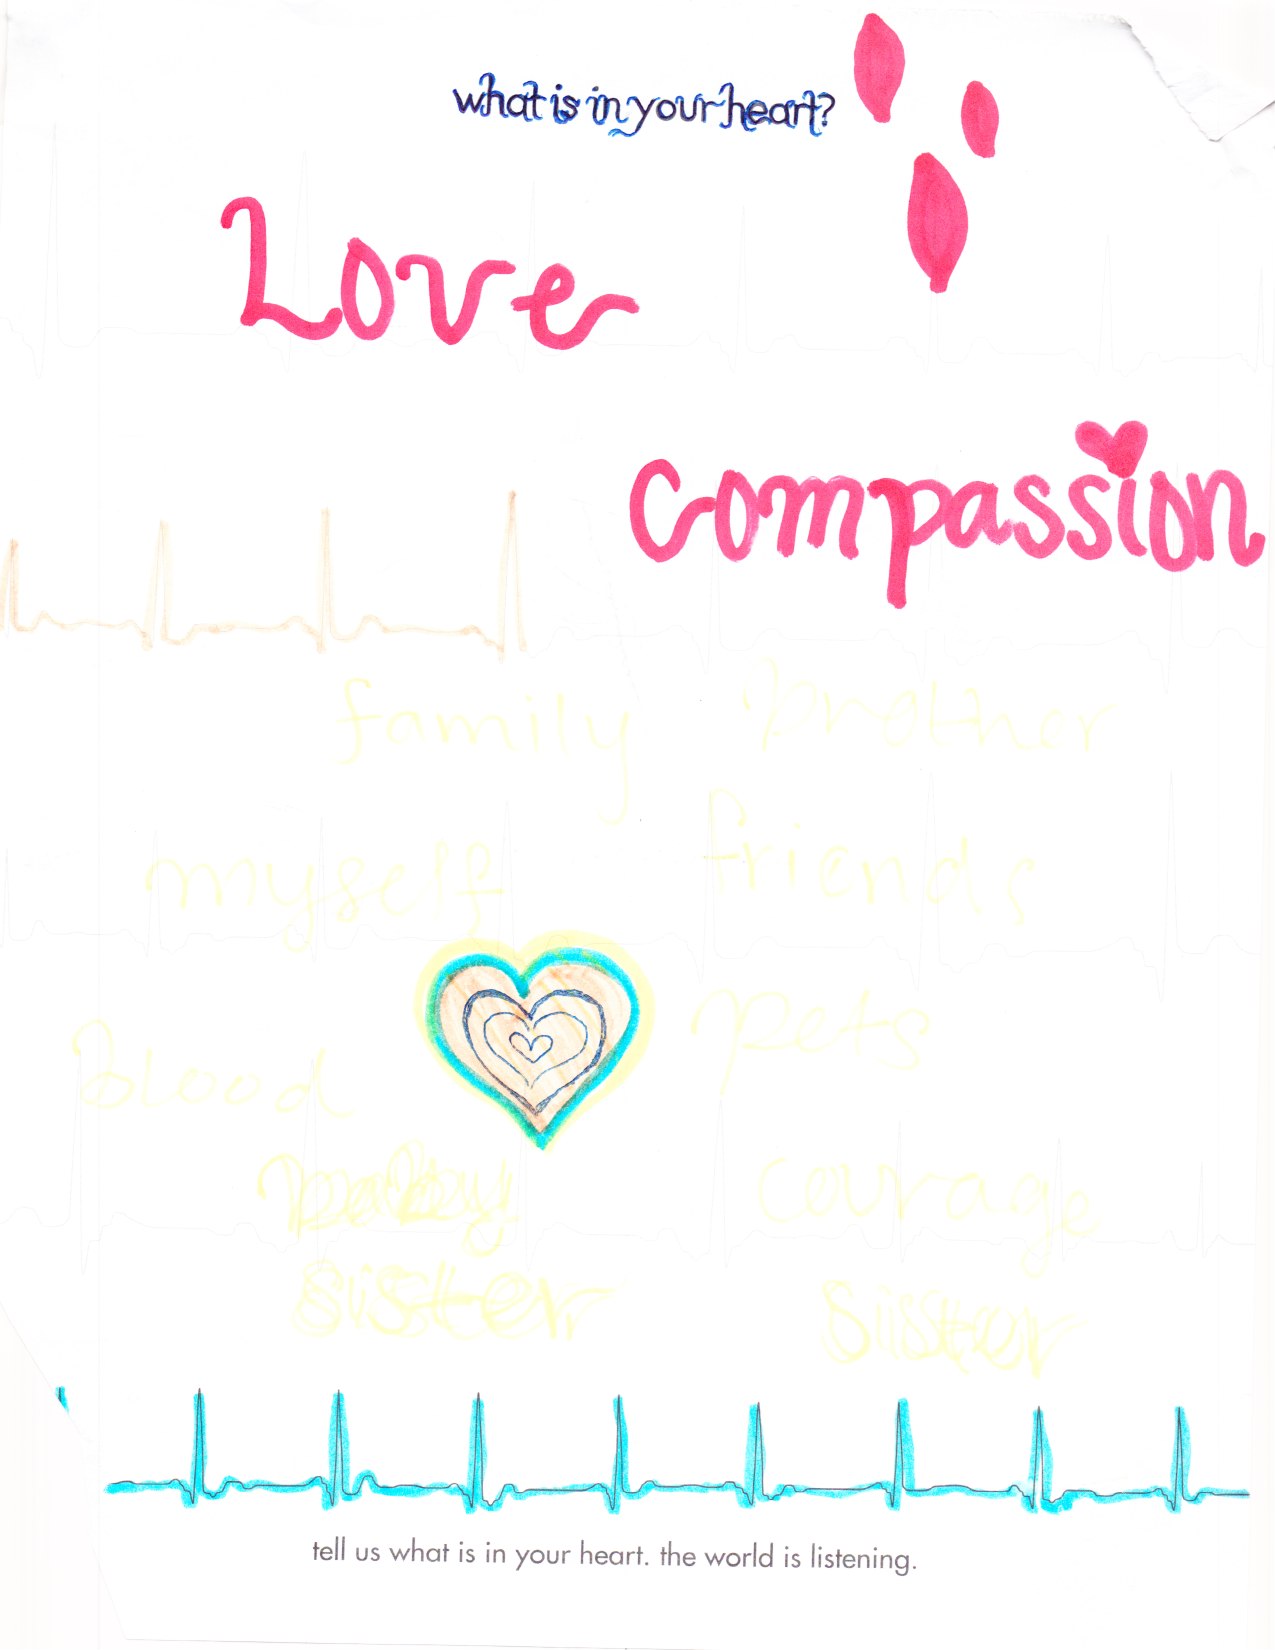 what is in your heart?
Love
compassion
family brother
myself friends
blood pets
baby courage
sister sister
tell us what is in your heart. the world is listening.